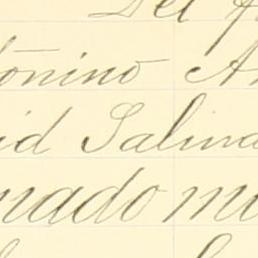 Del
onino A
id Salina
nado m